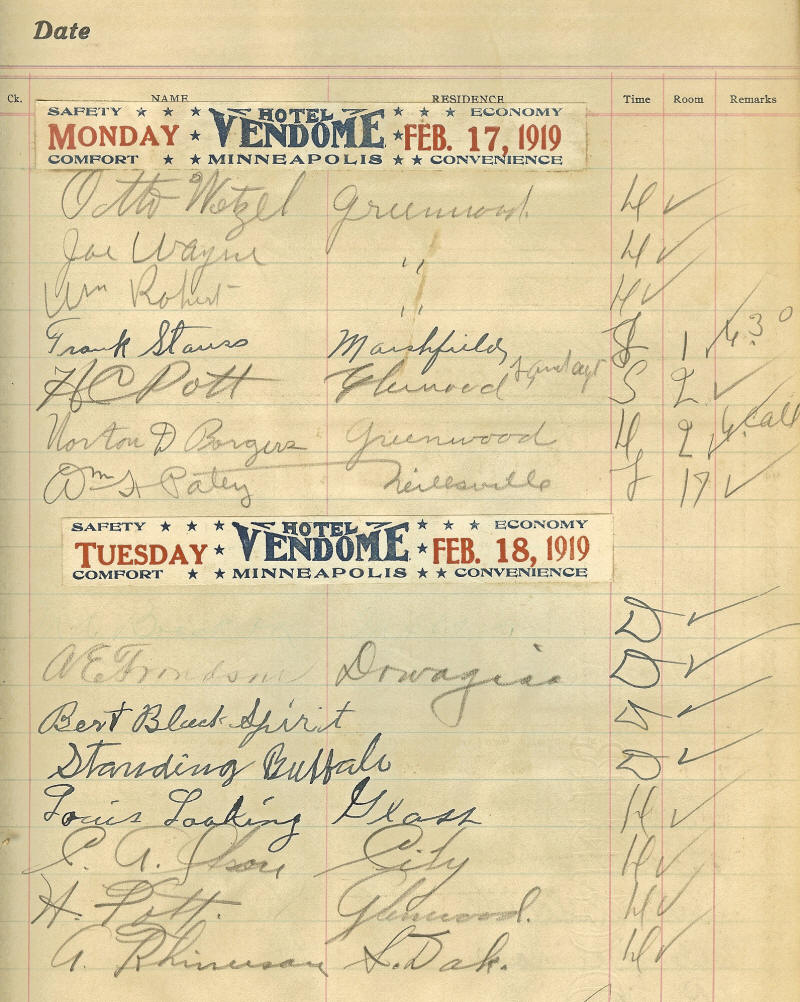 Date
Ck. NAME RESIDENCE Time Room Remarks
SAFETY ★ ★ ★ HOTEL ★ ★ ★ ECONOMY
MONDAY ★ VENDOME ★ FEB. 17, 1919
COMFORT ★ ★ MINNEAPOLIS ★ ★ CONVENIENCE
Otto Wetzel Greenwood. H ✓
Joe Wayne " H ✓
Wm Robert " H ✓
Frank Stauss Marshfield 1 ✓ 6.30
H C Pott Glenwood S 2 ✓
Norton D Borgers Greenwood H 2 ✓ Call
Wm H Patey Neillsville 17 ✓
SAFETY ★ ★ ★ HOTEL ★ ★ ★ ECONOMY
TUESDAY ★ VENDOME ★ FEB. 18, 1919
COMFORT ★ ★ MINNEAPOLIS ★ ★ CONVENIENCE
D ✓
A E Dowagiac D ✓
Bert Black Spirit ✓
Standing Buffalo D ✓
Louis Looking Glass H ✓
C. A. Olson City H ✓
H. Pott. Glenwood. H ✓
A. Rhinerson S. Dak. H ✓